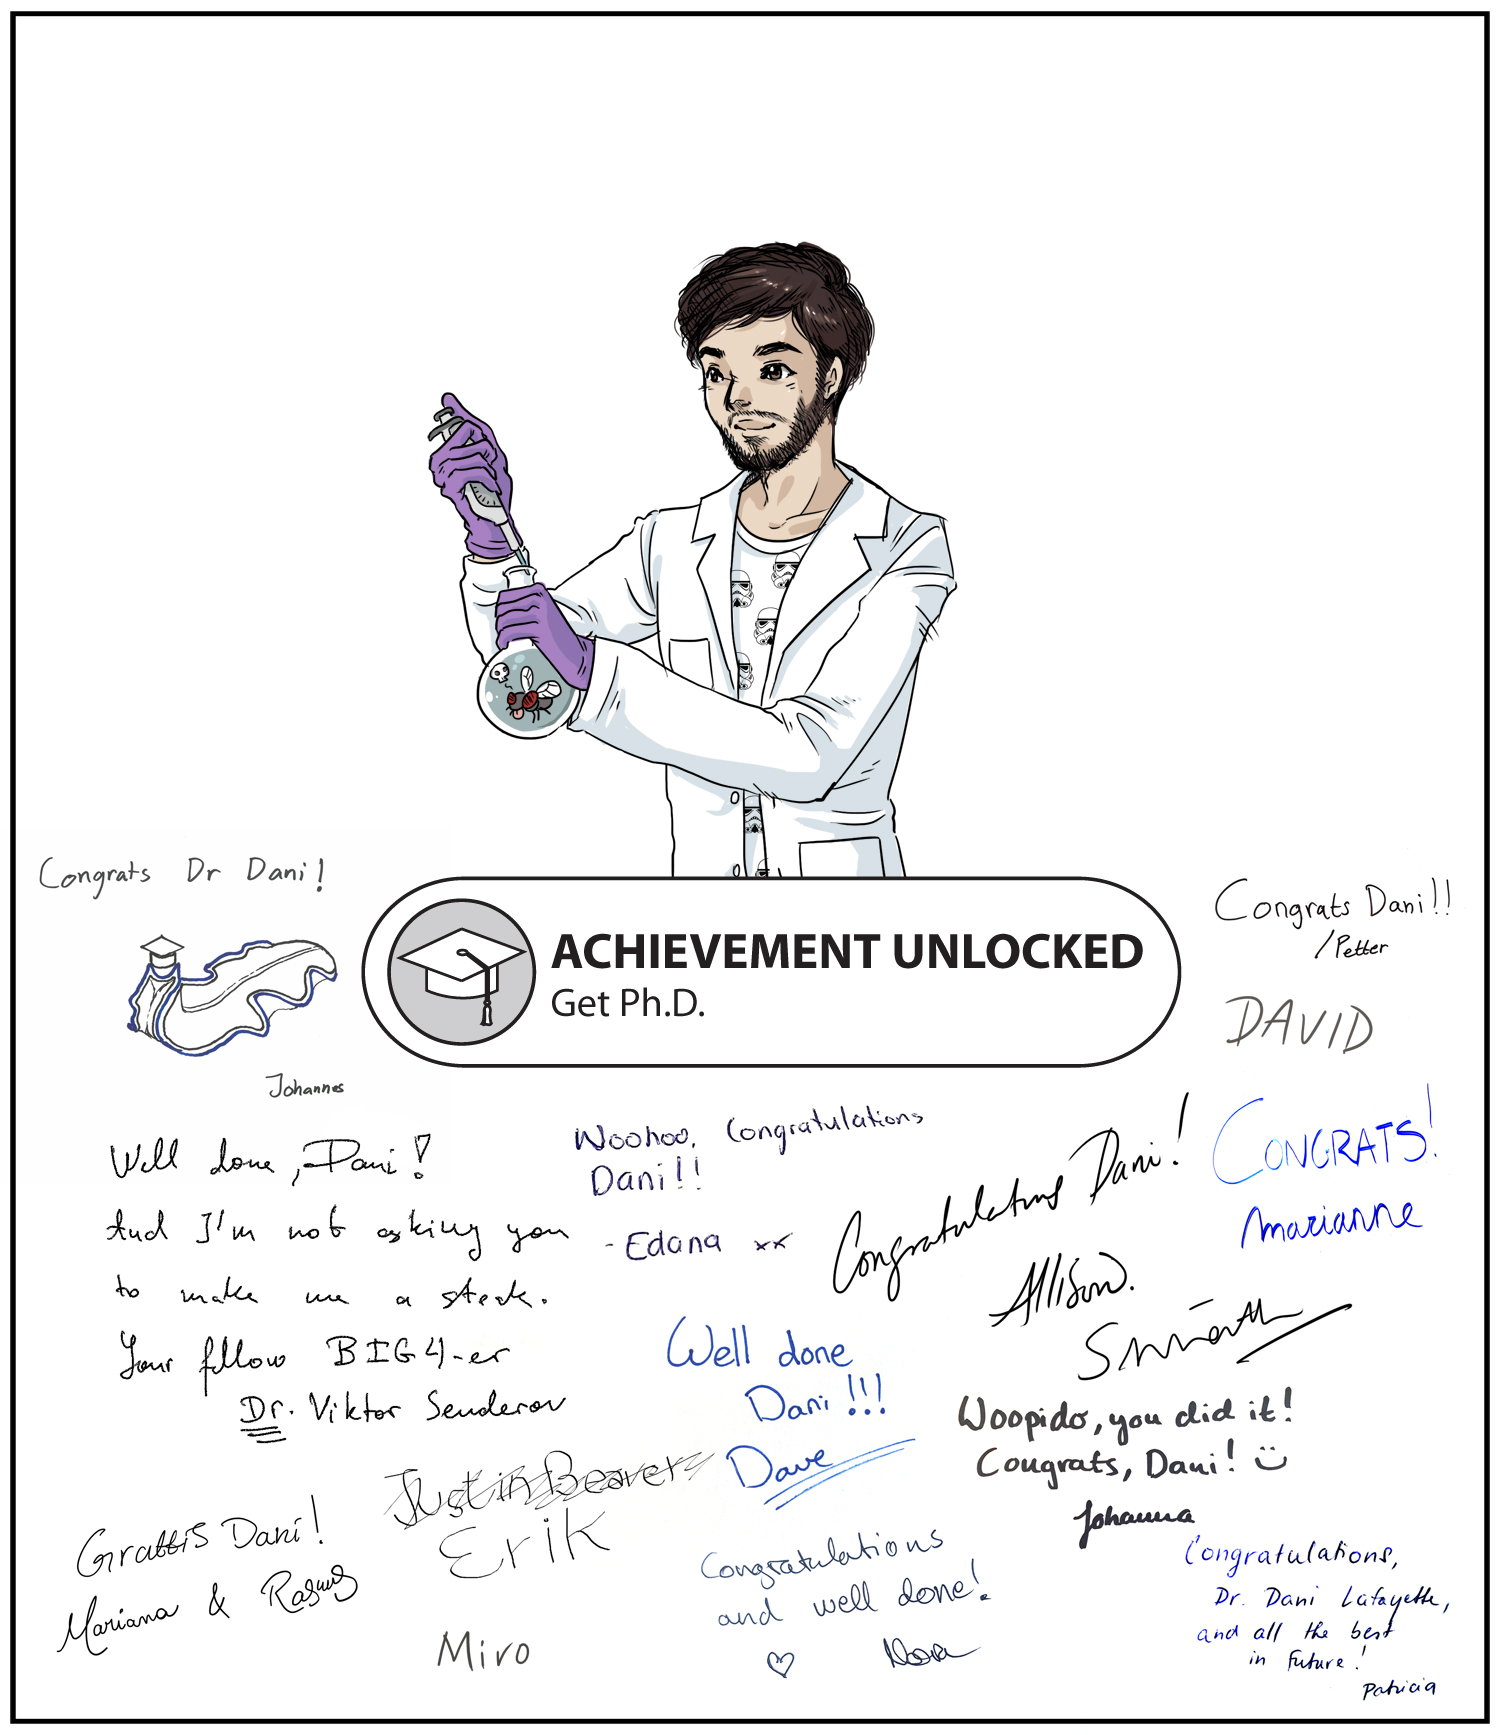 Congrats Dr Dani!
Johannes
ACHIEVEMENT UNLOCKED
Get Ph.D.
Congrats Dani!!
/Petter
DAVID
Well done, Dani!
And I'm not asking you
to make me a steak.
Your fellow BIG4-er
Dr. Viktor Senderov
Woohoo, Congratulations
Dani!!
- Edana xx
Congratulations Dani!
Allison.
CONGRATS!
Marianne
Well done
Dani!!!
Dave
Woopido, you did it!
Congrats, Dani! :)
Johanna
Justin Beaver
Erik
Grattis Dani!
Mariana & Rasmus
Miro
Congratulations
and well done!
♡ Nora
Congratulations,
Dr. Dani Lafayette,
and all the best
in future!
Patricia